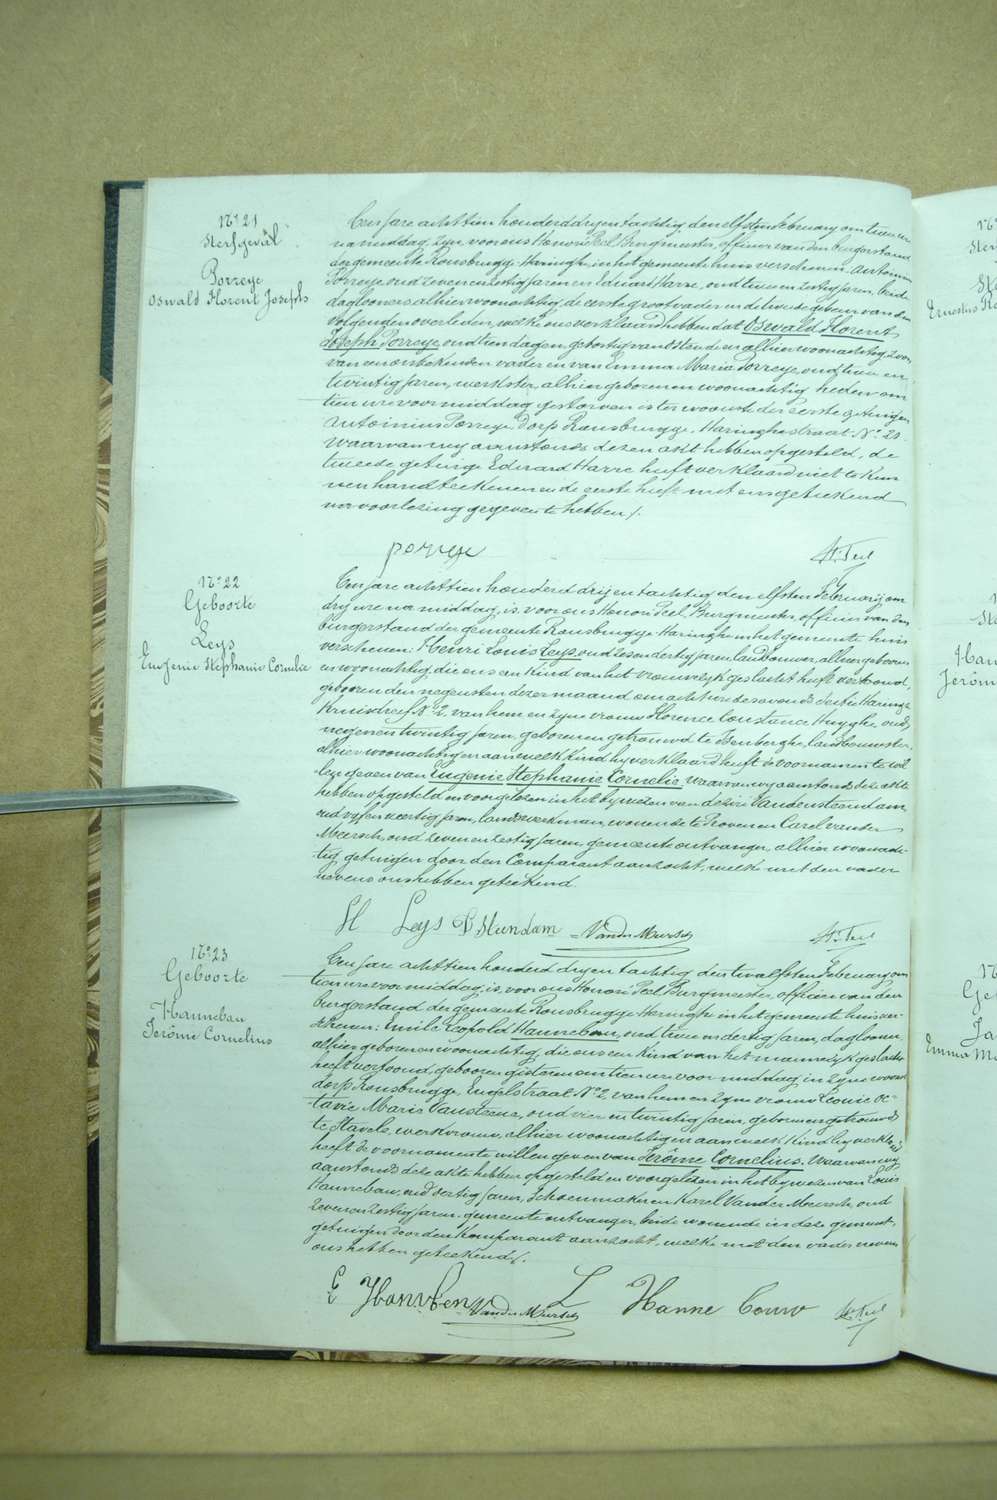 N° 21
Sterfgeval
Porreye
Oswald Florent Joseph
Een jare achttien honderd drij en tachtig den elfsten February om twee ure
namiddag, zijn voor ons Honoré Peel Burgmeester, officier van den burgerstand
der gemeente Rousbrugge Haringhe in het gemeente huis verschenen: Antoinius
Porreye oud zeven en zestig jaren en Eduard Harre, oud twee en zestig jaren, beide
daglooners alhier woonachtig, de eerste grootvader en de tweede gebuur van den
volgenden overleden, welke ons verklaard hebben dat Oswald Florent
Joseph Porreye, oud tien dagen, geboortig van Ostende en alhier woonachtig, zoon
van eenen onbekenden vader en van Emma Maria Porreye, oud twee en
twintig jaren, werkster, alhier geboren en woonachtig heden om
tien ure voormiddag gestorven is ter woonste der eerste getuigen
Antoinius Porreye dorp Rousbrugge, Haringhestraat N° 20.
Waarvan wij aanstonds dezen akt hebben opgesteld, de
tweede getuige Eduard Harre heeft verklaard niet te kun
nen handteekenen en de eerste heeft met ons geteekend
na voorlezing gegeven te hebben /.
porreye
H. Peel
N° 22
Geboorte
Leys
Eugenie Stephanie Cornelie
Een jare achttien honderd drij en tachtig den elfsten February om
drij ure namiddag, is voor ons Honoré Peel Burgmeester, officier van den
burgerstand der gemeente Rousbrugge Haringhe in het gemeente huis
verschenen: Henri Louis Leys, oud zes en dertig jaren, landbouwer, alhier geboren
en woonachtig, die ons een Kind van het vrouwelijk geslacht heeft vertoond,
geboren den negensten dezer maand om acht ure des avonds sectie Haringe
Kruisdreef N° 2, van hem en zijne vrouw Florence Constance Huyghe oud
negen en twintig jaren, geboren en getrouwd te Isenberghe, landbouwster,
alhier woonachtig en aan welk Kind hij verklaard heeft de voornamen te wil
len geven van Eugenie Stephanie Cornelie, waarvan wij aanstonds deze akte
hebben opgesteld en voorgelezen in het bijwezen van Désiré Vandenstendam
oud vijf en veertig jaren, landswerkman, wonende te Proven en Carel vander
Meersch, oud zeven en zestig jaren, gemeente ontvanger, alhier woonach
tig, getuigen door den Comparant aanzocht, welke met den vader
nevens ons hebben geteekend
H Leys
Vander Meersch
H. Peel
N° 23
Geboorte
Hannebau
Jerôme Cornelius
Een jare achttien honderd drij en tachtig den twalfsten February om
tien ure voormiddag, is voor ons Honoré Peel Burgmeester, officier van den
burgerstand der gemeente Rousbrugge Haringhe in het gemeente huis ver-
schenen: Emile Leopold Hannebau, oud twee en dertig jaren, daglooner,
alhier geboren en woonachtig, die ons een Kind van het mannelijk geslacht
heeft vertoond, geboren gisteren om tien ure voormiddag, in zijne woonst
dorp Rousbrugge, Engelstraat N° 2, van hem en zijne vrouw Leonie Oc-
tavie Marie Vansteene, oud vier en twintig jaren, geboren en getrouwd
te Stavele, werkvrouw, alhier woonachtig en aan welk Kind hij verklaard
heeft de voornamente willen geven van Jerôme Cornelius. Waarvan wij
aanstonds deze akte hebben opgesteld en voorgelezen in het bijwezen van Louis
Hannebau, oud dertig jaren, Schoenmaker en Karel Vander Meersch, oud
zeven en zestig jaren, gemeente ontvanger, beide wonende in deze gemeente,
getuigen door den Komparant aanzocht, welke met den vader nevens
ons hebben geteekend /.
Vander Meersch
L Hanne bouw
H. Peel